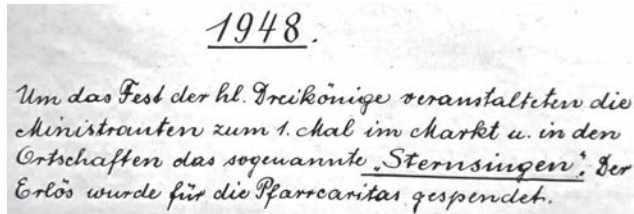 1948.
Um das Fest der hl. Dreikönige veranstalteten die
Ministranten zum 1. Mal im Markt u. in den
Ortschaften das sogenannte „Sternsingen“. Der
Erlös wurde für die Pfarrcaritas gespendet.